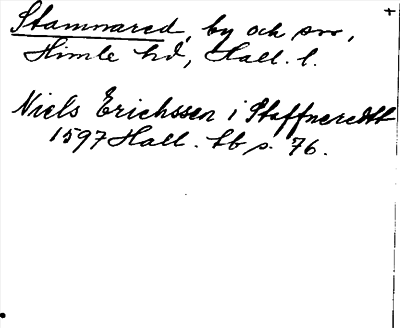 Stamnared, by och sn,
Himle hd, Hall. l.
Niels Erichssen i Staffneredtt
1597 Hall. tb s. 76.